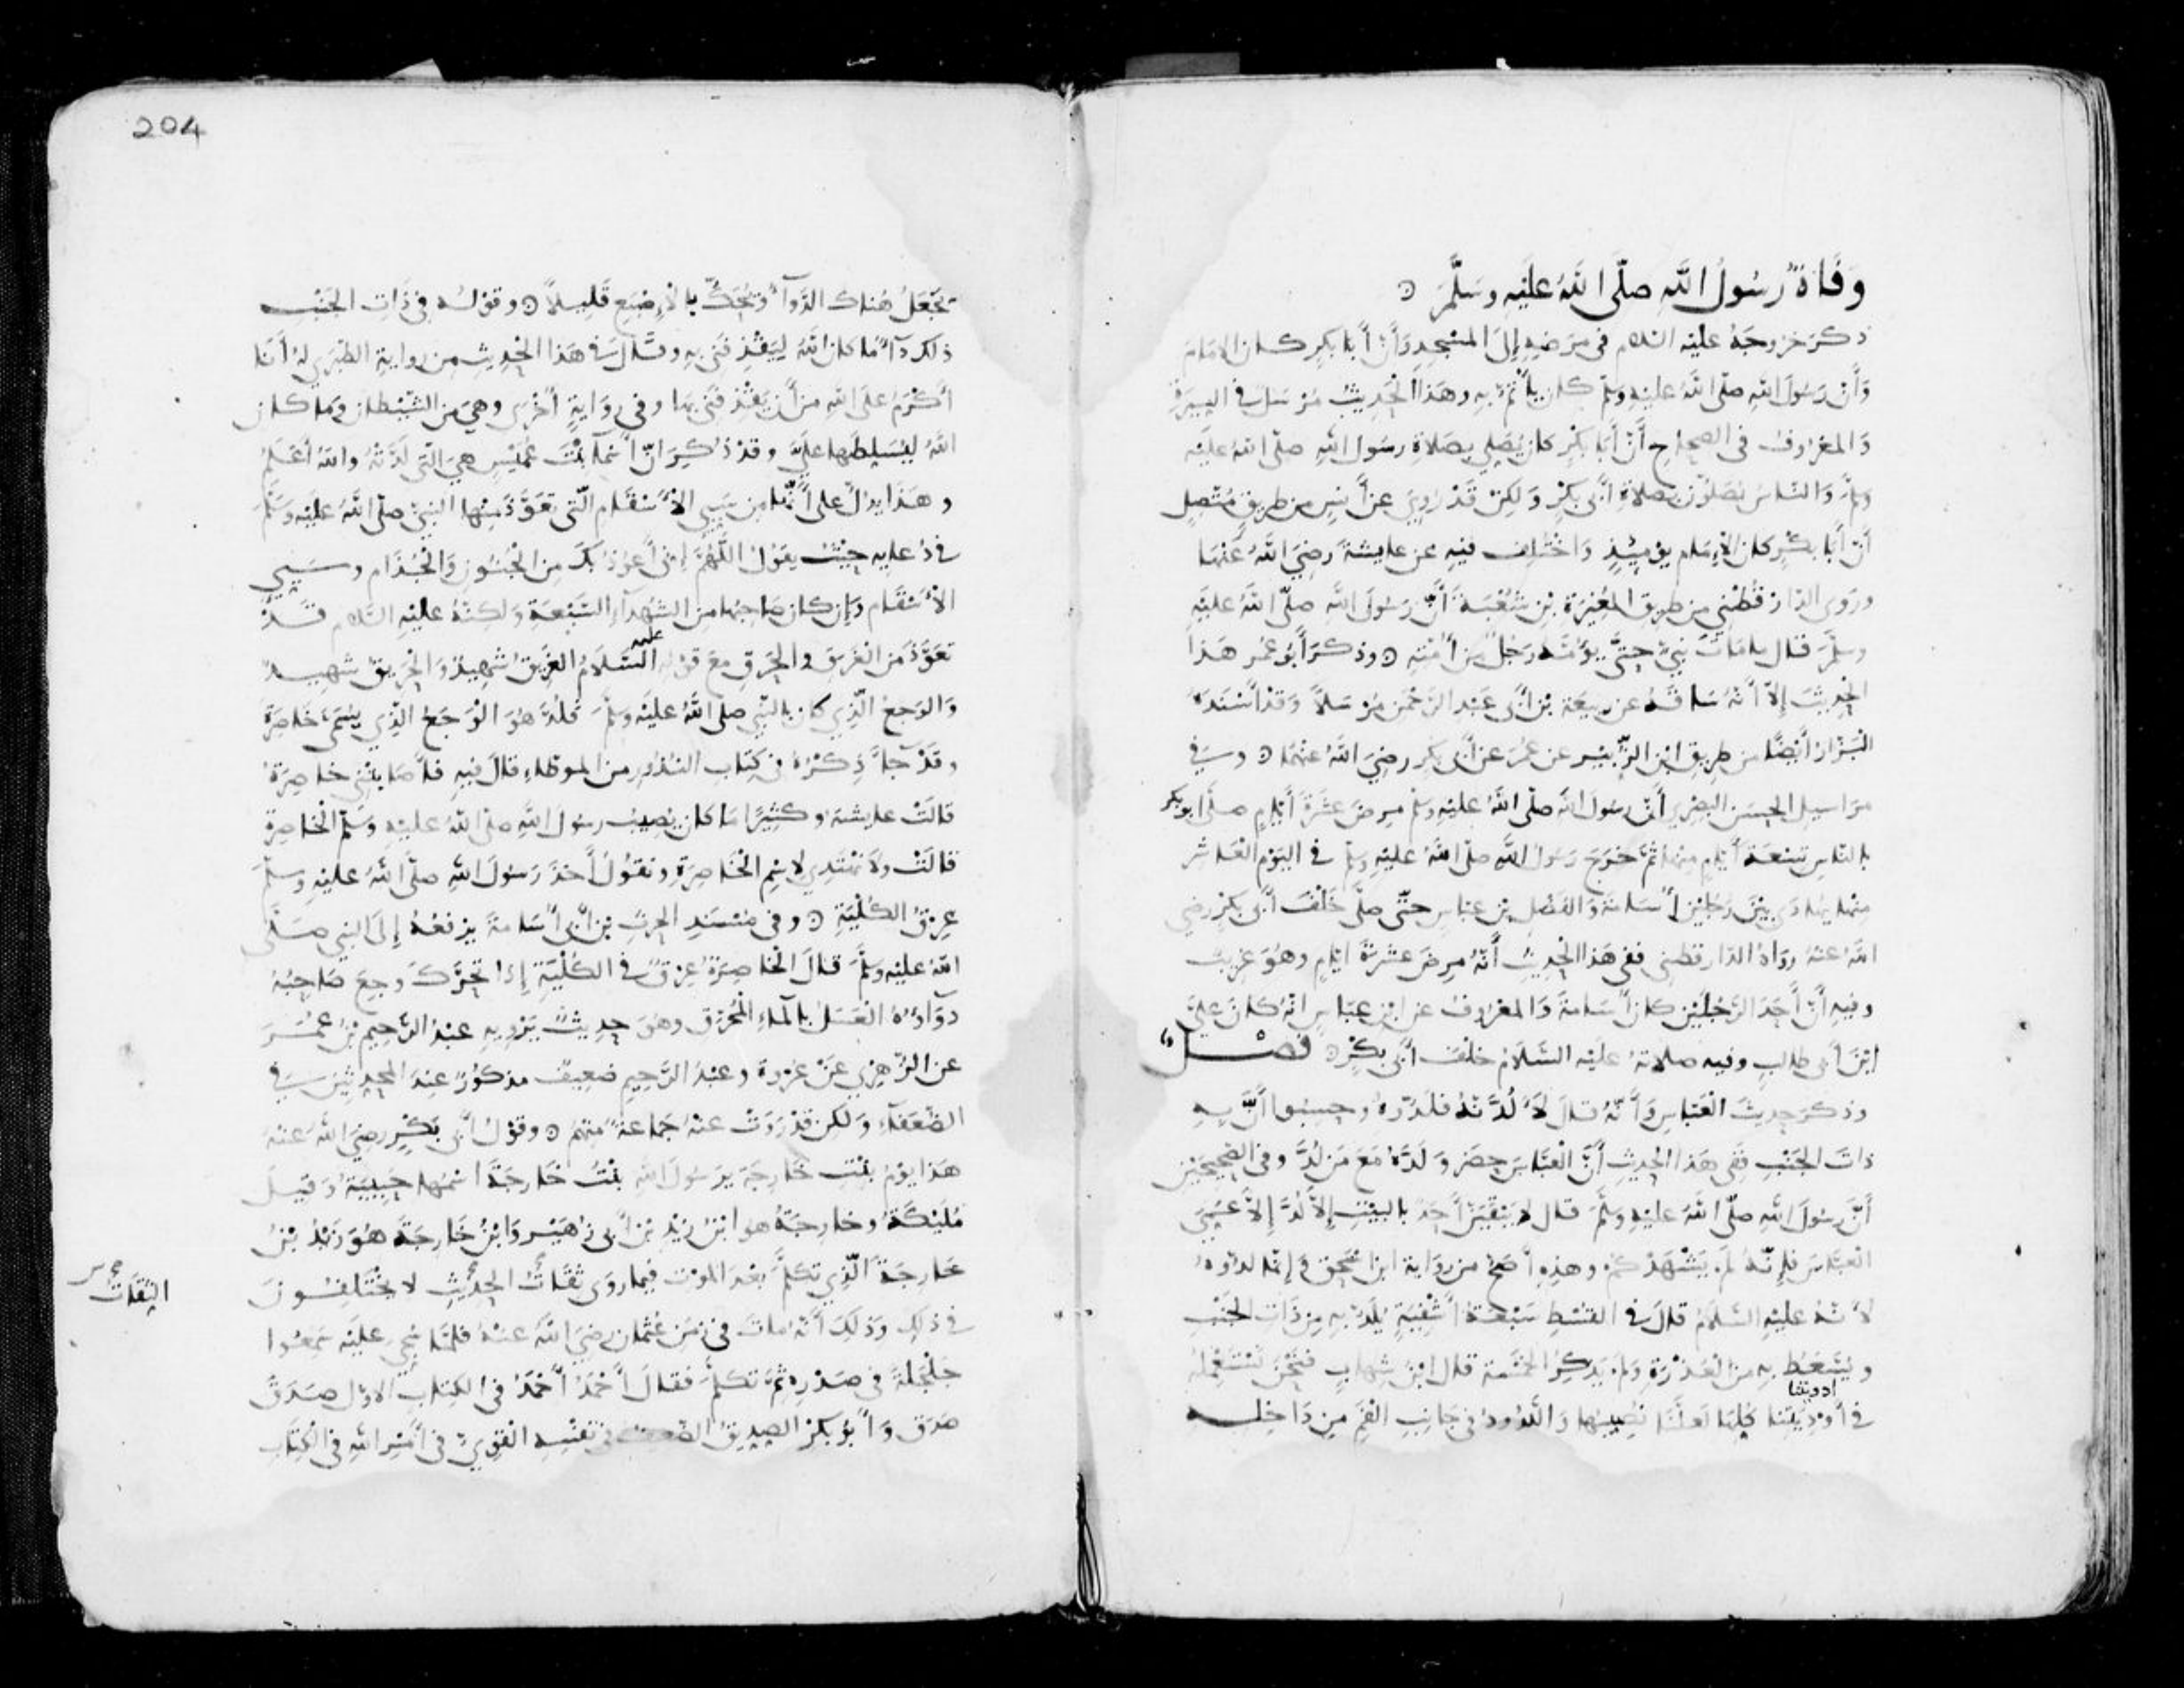 وَفَاةُ رَسُولِ اللهِ صلّى اللهُ علَيهِ وسَلَّمَ ۞
ذكرَ خروجَهُ عليْه السّلام في مرَضِهِ إلى المسْجِدِ وَأنّ أبا بكرٍ كان الامَامَ
وَأنّ رَسُولَ اللهِ صلّى اللهُ عليْهِ وسلّم كان يأتمُّ بهِ وهَذا الحَديثُ مُرْسَلٌ في السِيرَةِ
وَالمعْروفُ في الصحاح أَنّ أَبا بَكْرٍ كان يُصَلي بصَلاةِ رسُولِ اللهِ صلّى اللهُ علَيْه
وسلّمَ وَالنّاسُ يُصَلّونَ بصَلاةِ أَبي بكْرٍ وَلكِنْ قَدْ رُوِيَ عَنْ أَنسٍ من طريقٍ مُتّصِلٍ
أنّ أبا بكْرٍ كان الإمَام يوْمئِذٍ وَاختُلِفَ فيهِ عن عايشةَ رضِيَ اللهُ عَنْها
وروَى الدّارَقُطْني من طريق المُغيْرَةِ بْنِ شُعْبَةَ أَنَّ رَسُولَ اللهِ صلّى اللهُ علَيْهِ
وسلَّمَ قال ما مَاتَ نَبيٌّ حتَّى يؤُمَّهُ رجُلٌ مِن أُمّتِهِ ۞ وذكرَ أَبُو عُمر هَذا
الحَديثَ إلاّ أنّهُ سَاقَهُ عن ربيعَة بْن أَبي عَبْد الرّحمن مُرْسَلاً وَقَدْ أَسْنَدَهُ
البَزّارُ أَيضًا من طريق ابْن الزّبَيْر عن عُمَرَ عَن أَبي بكر رضِيَ اللهُ عنهُما ۞ وسَ في
مَرَاسيل الحسَن البصْري أَنّ رسُولَ اللهِ صلّى اللهُ عليْهِ وسلّم مرِضَ عَشَرَةَ أَيّامٍ صلّى ابوبكر
بالنّاسِ تِسْعَةَ أَيّامٍ منها ثمّ خرَجَ رَسُولُ اللهِ صلّى اللهُ عليْهِ وسلّم في اليَوْم العَاشر
منها يُهادَى بيْنَ رجُلَيْنِ أُسَامَةَ وَالفَضْلِ بْن عبّاسٍ حتّى صلّى خَلْفَ أَبي بكرٍ رضي
اللهُ عنهُ روَاهُ الدّارقطني ففي هَذا الحَديثِ أَنّهُ مرِضَ عشَرَةَ ايّامٍ وهُوَ غريبٌ
وفيهِ أَنّ أَحَدَ الرّجُلَيْنِ كان أُسَامةَ وَالمعْروفُ عن ابْن عبّاسٍ انّهُ كان عَليَّ
ابْنَ أَبي طالبٍ وفيه صلاتهُ علَيْه السّلامُ خلْفَ أَبي بكْرٍ ۞ فَصْــل
وذكرَ حديثَ العَبّاس وَأَنّهُ قالَ لأَلُدَّنّهُ فلَدّوهُ وحسِبُوا أَنَّ بهِ
ذاتَ الجَنْبِ ففي هَذا الحديثِ أَنَّ العبَّاسَ حضَرَ وَلَدَّهُ مَعَ مَن لَدَّ وفي الصّحيحَيْنِ
أَنَّ رسُولَ اللهِ صلّى اللهُ عليْهِ وسلَّمَ قال لا يَبْقَيَنّ أَحَدٌ بالبَيْتِ إلاّ لُدَّ إلاّ عَمّيَ
العبَّاسَ فإنّهُ لم يَشْهَدْكُم وهذِهِ أَصَحّ من روَاية ابْن إسْحَقَ وإنّما لدّوهُ
لأنّهُ عليْهِ السّلامُ قالَ في القُسْطِ سَبْعَةُ أَشْفِيَةٍ يُلَدّ بهِ مِن ذَات الجَنْبِ
ويُسْعَطُ بهِ مِن العُذْرَةِ وَلم يَذكُرِ الخمْسَة قال ابْنُ شِهابٍ فنَحْنُ نَسْتَعْمِلهُ
ادويتنا
في أَوْدِيَتِنا كُلِّهَا لَعَلّنَا نُصِيبُها وَاللَّدُودُ في جَانِبِ الفَمِ مِن دَاخِلِه
204
تجْعَلُ هُنَاكَ الدَّوَآء وَتحُكّ بالإِصْبَعِ قَليلاً ۞ وقولُهُ في ذَاتِ الجَنْبِ
ذلكَ دَآءٌ مَا كان اللهُ ليَقْذِفَني بهِ وقَالَ في هَذا الحَديثِ من روَاية الطّبَري لهُ أَنَا
أَكْرَمُ عَلَى اللهِ مِن أَن يَقْذِفَني بها وفي رِوَايَةٍ أُخْرَى وهيَ من الشّيْطانِ وَما كان
اللهُ ليُسَلِّطَها عليّ وقدْ ذُكِرَ انّ أَسْمَآ بنْتَ عُمَيْسٍ هيَ التي لَدّتْهُ واللهُ أَعْلَمُ
وهَذَا يدُلّ على أَنّها من سَيِّي الأَسْقَامِ الّتي تعَوَّذَ مِنْها النبيُّ صلّى اللهُ عليْه وسَلّمَ
في دُعايهِ حيْثُ يقولُ اللَّهُمَّ إنّي أَعُوذُ بكَ مِن الجُنُونِ وَالجُذَامِ وسَيّي
الأَسْقَامِ وَإن كان صَاحِبُها من الشُهدَآءِ السَّبْعَةِ وَلكِنَّهُ عليْهِ السّلام قَدْ
تعَوَّذَ مَن الغَرَق والحَرَقِ معَ قوْلِهِ عليه السّلامُ الغَريقُ شَهِيدٌ وَالحَريقُ شَهِيدٌ
وَالوَجَعُ الّذي كان بالنّبيِ صلى اللهُ عليْهِ وسلّمَ فَلُدَّ هوَ الوَجَعُ الّذي يسَمّى خَاصِرَةً
وقَدْ جآ ذِكْرُهُ في كِتَاب النذُورِ من الموطّاءِ قالَ فيهِ فأَصَابتْني خاصِرَةٌ
قالَتْ عايشَةُ وكثيرًا مَا كان يُصِيبُ رسُولَ اللهِ صلّى اللهُ عليهِ وسَلّم الخَاصِرَةُ
قالَتْ ولا نَهْتَدي لاسْمِ الخَاصِرَةِ ونقولُ أَخَذَ رَسُولَ اللهِ صلّى اللهُ عليْهِ وسلّمَ
عِرْقُ الكُلْيَةِ ۞ وفي مُسْنَدِ الحرثِ بْن أَبي أُسَامةَ يرْفَعُهُ إلَى النبي صَلّى
اللهُ عليْهِ وسلّمَ قَالَ الخَاصِرَةُ عِرْقٌ في الكُلْيَةِ إذا تحَرَّكَ وجِعَ صَاحِبُهُ
دوَآؤهُ العَسَلُ بالمآءِ المُحْرَقِ وهوَ حَديثٌ يَرْويهِ عبْدُ الرّحِيمِ بْنُ عُمَرَ
عن الزُّهْري عَنْ عُرْوَة وعبْدُ الرَّحيمِ ضعِيفٌ مذكُورٌ عِندَ المُحَدِّثينَ في
الضُّعَفَآءِ وَلكِن قدْ رَوَتْ عنهُ جَمَاعَةٌ مِنْهُمْ ۞ وقوْلُ أَبي بَكْرٍ رضِيَ اللهُ عنْهُ
هَذا يَوْمُ بنْتِ خَارِجَة يَرَسُولَ اللهِ بنْتُ خَارِجَةَ اسْمُها حَبِيبَةُ وَقيلَ
مُلَيْكَةُ وخارِجَةُ هو ابْنُ زيْدِ بْن أَبي زُهَيْرٍ وَابْنُ خَارِجَةَ هُوَ زَيْدُ بْنُ
خارِجَةَ الّذي تكلَّمَ بعْدَ المَوْتِ فيما رَوَى ثِقَاتُ الحَديثِ لا يَخْتَلِفُونَ
الثقَاتُ
في ذلِك وَذلكَ أَنّهُ ماتَ في زمَن عُثْمانَ رضيَ اللهُ عنْهُ فلمّا سُجّيَ عليْه سَمِعُوا
جَلْجَلَةً في صَدْرِهِ ثمَّ تكلَّمَ فقالَ أَحْمَدُ أَحْمَدُ في الكِتابِ الأوّلِ صَدَقَ
صَدَقَ وَأَبُو بكرٍ الصِديقُ الضّعيفُ في نَفْسِهِ القَوِيّ في أَمْرِ اللهِ في الكِتَابِ